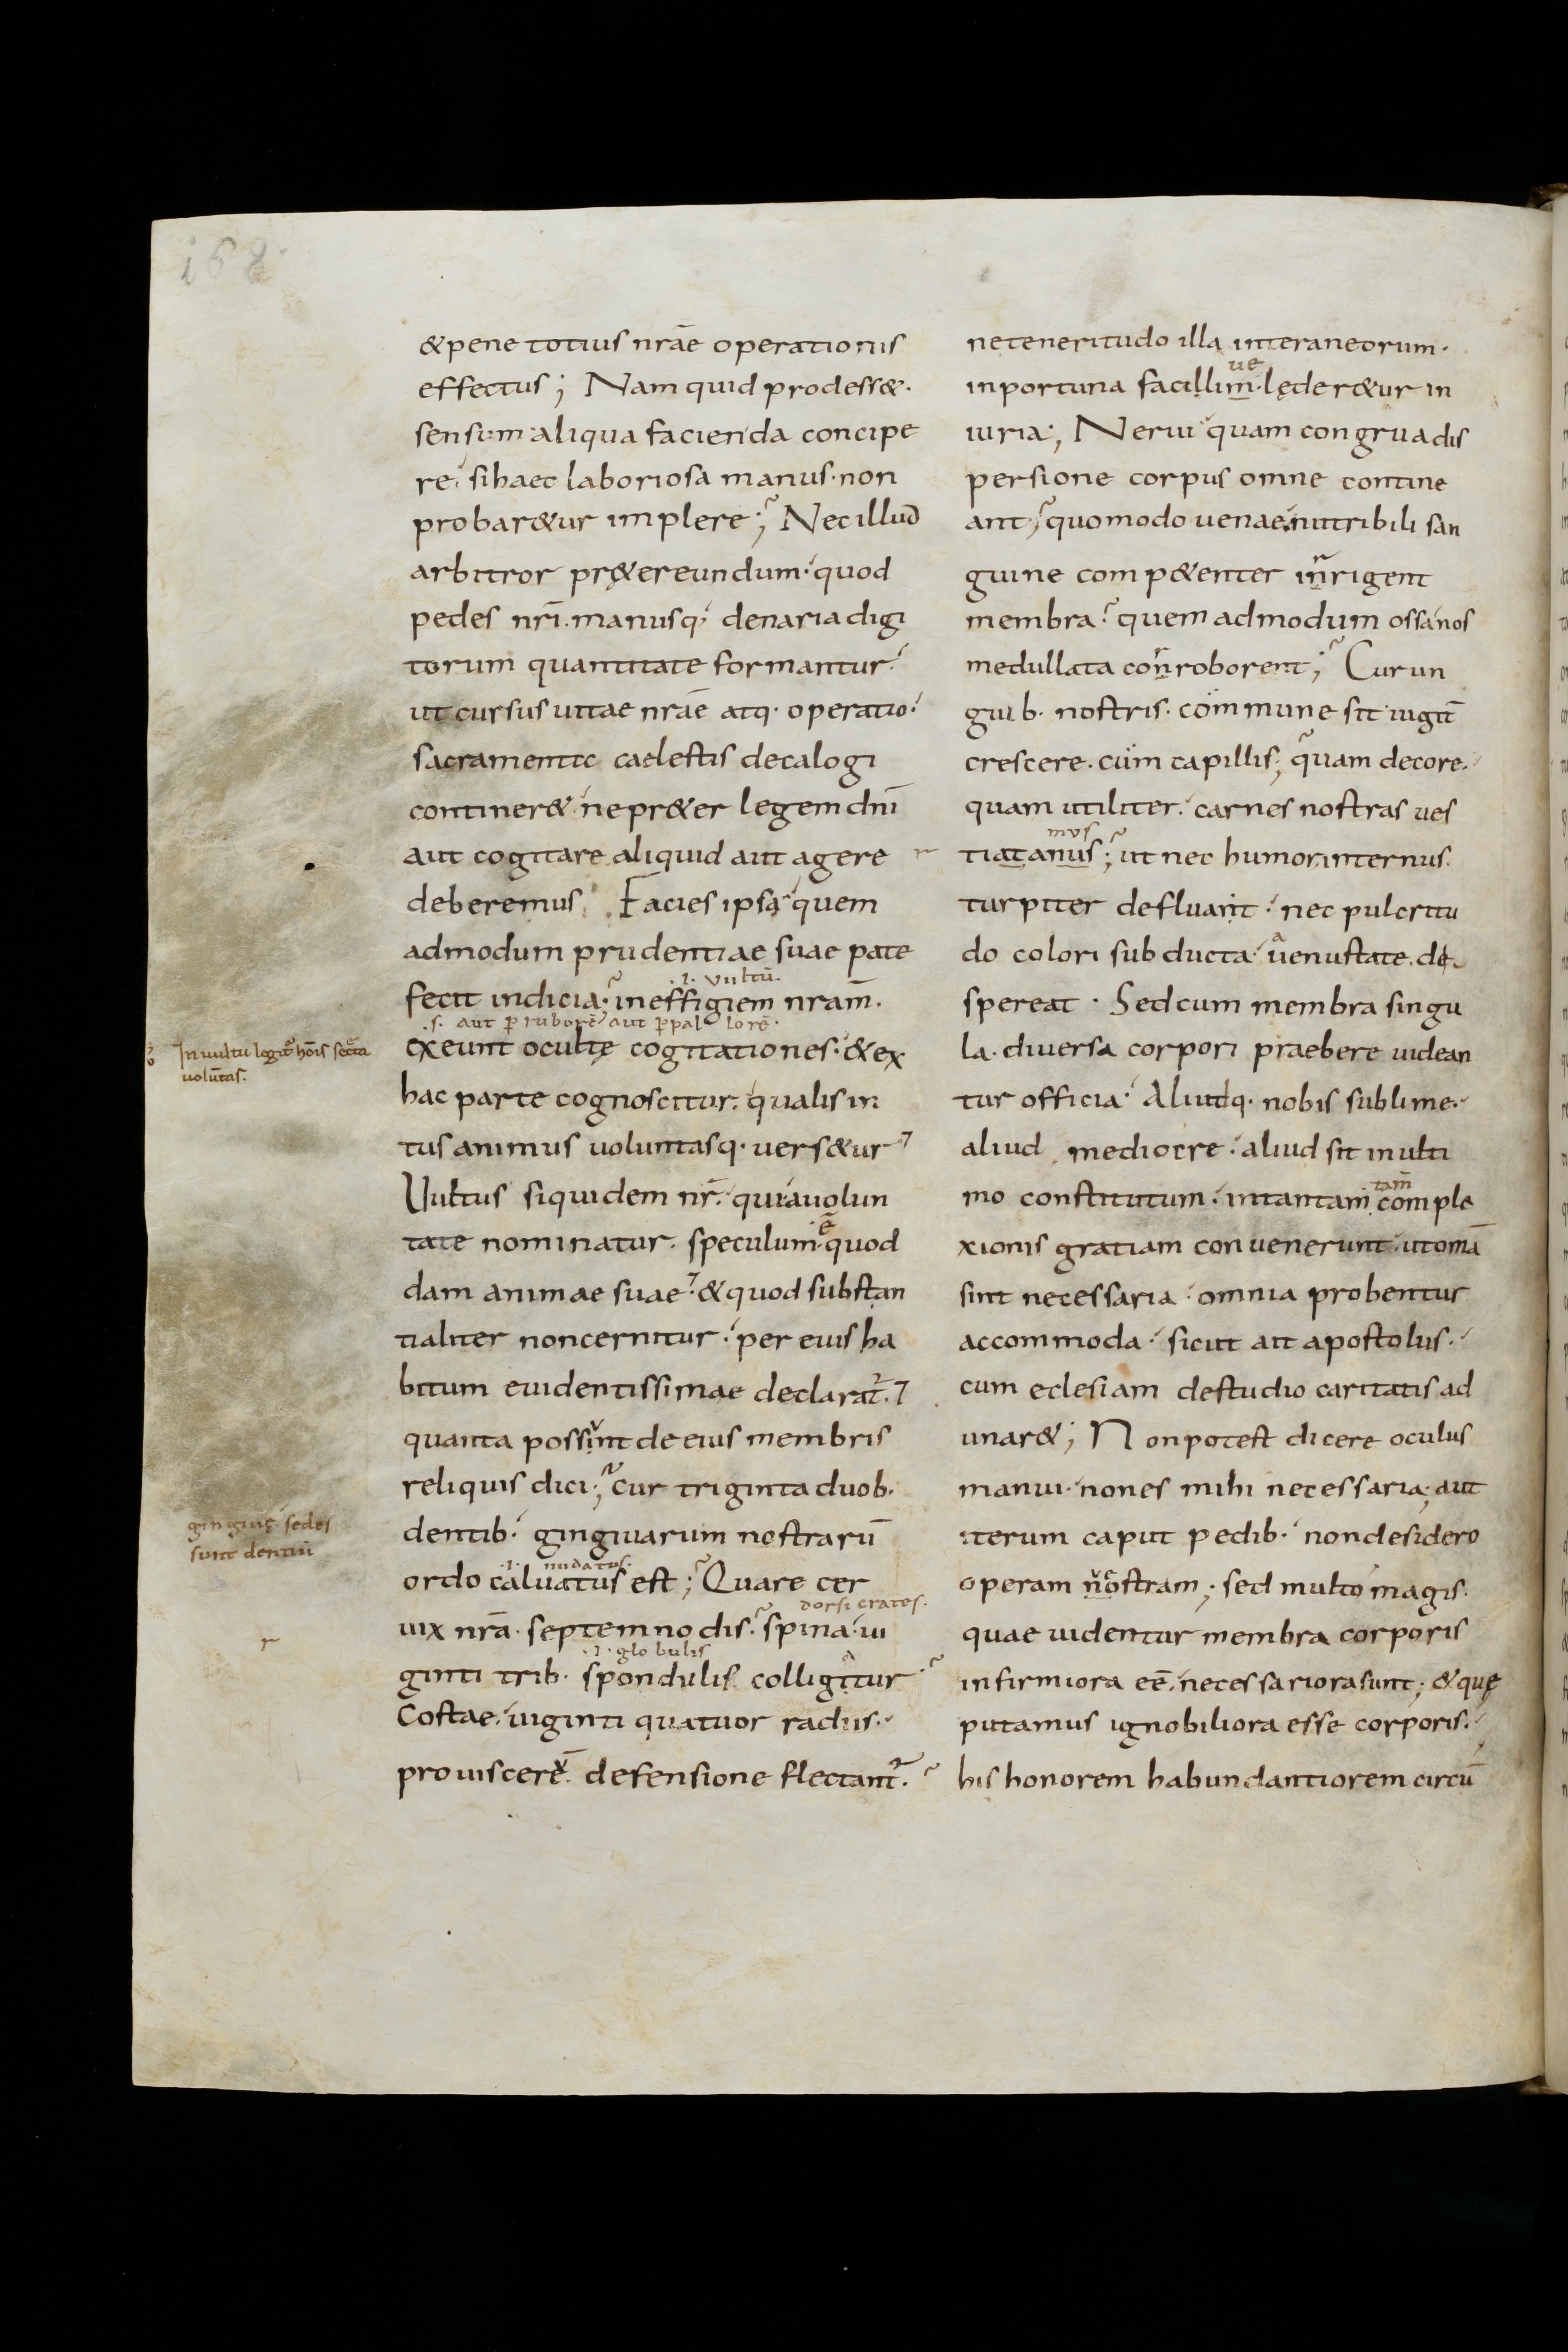 168
&pene totius nrāe operationis
effectus; Nam quid prodess&.
sensum aliqua facienda concipe
re. si haec laboriosa manus. non
probar&ur implere; Nec illud
arbitror pr&ereundum. quod
pedes nrī. manusq. denaria digi
torum quantitate formantur.
ut cursus uitae nrāe atq. operatio.
sacramentic caelestis decalogi
continer&. ne pr&er legem dnī
aut cogitare aliquid aut agere
deberemus. Facies ipsa quem
admodum prudentiae suae pate
.i. vultū.
fecit indicia. in effigiem nram̄.
.s. aut p̄ ruborē aut p̄ pallorē.
In uultu legit̄ hōis secr̄ta
uolūtas.
exeunt occultę cogitationes. &ex
hac parte cognoscitur. qualis in
tus animus uoluntasq. uers&ur
Uultus siquidem nr̄. qui a uolun
ē
tate nominatur. speculum. quod
dam animae suae. &quod substan
tialiter non cernitur. per eius ha
bitum euidentissimae declarat̄.
quanta possint de eius membris
reliquis dici; cur triginta duob.
gingiuę. sedes
sunt dentiū
dentib. gingiuarum nostrarū
.i. nudatus.
ordo caluatus est; Quare cer
dorsi crates.
uix nrā. septem nodis. spina. ui
.i. globulis
ginti trib. spondulis colligitur
Costae. uiginti quatuor radiis.
pro uiscerē. defensione flectant̄.
ne teneritudo illa interaneorum.
ue
inportuna facillim. lęder&ur in
iuria; Nerui quam congrua dis
persione corpus omne contine
ant; quomodo uenae nutribili san
guine comp&enter inrigent
membra. quem admodum ossa nos
medullata conroborent; Cur un
guib. nostris. commune sit iugit̄
crescere. cum capillis; quam decore.
quam utiliter. carnes nostras ues
mus
tiat anus; ut nec humor internus.
turpiter defluant. nec pulcritu
a
do colori subducta uenustate. de
spereat. Sed cum membra singu
la. diuersa corpori praebere uidean
tur officia. Aliudq. nobis sublime.
aliud mediocre. aliud sit in ulti
tam̄
mo constitutum. in tantam comple
xionis gratiam conuenerunt. ut omā
sint necessaria. omnia probentur
accommoda. sicut ait apostolus.
cum eclesiam de studio caritatis ad
unar&; Non potest dicere oculus
manui. non es mihi necessaria; aut
iterum caput pedib. non desidero
operam nostram; sed multo magis.
quae uidentur membra corporis
infirmiora eē. necessariora sunt; &quę
putamus ignobiliora esse corporis.
his honorem habundantiorem circū